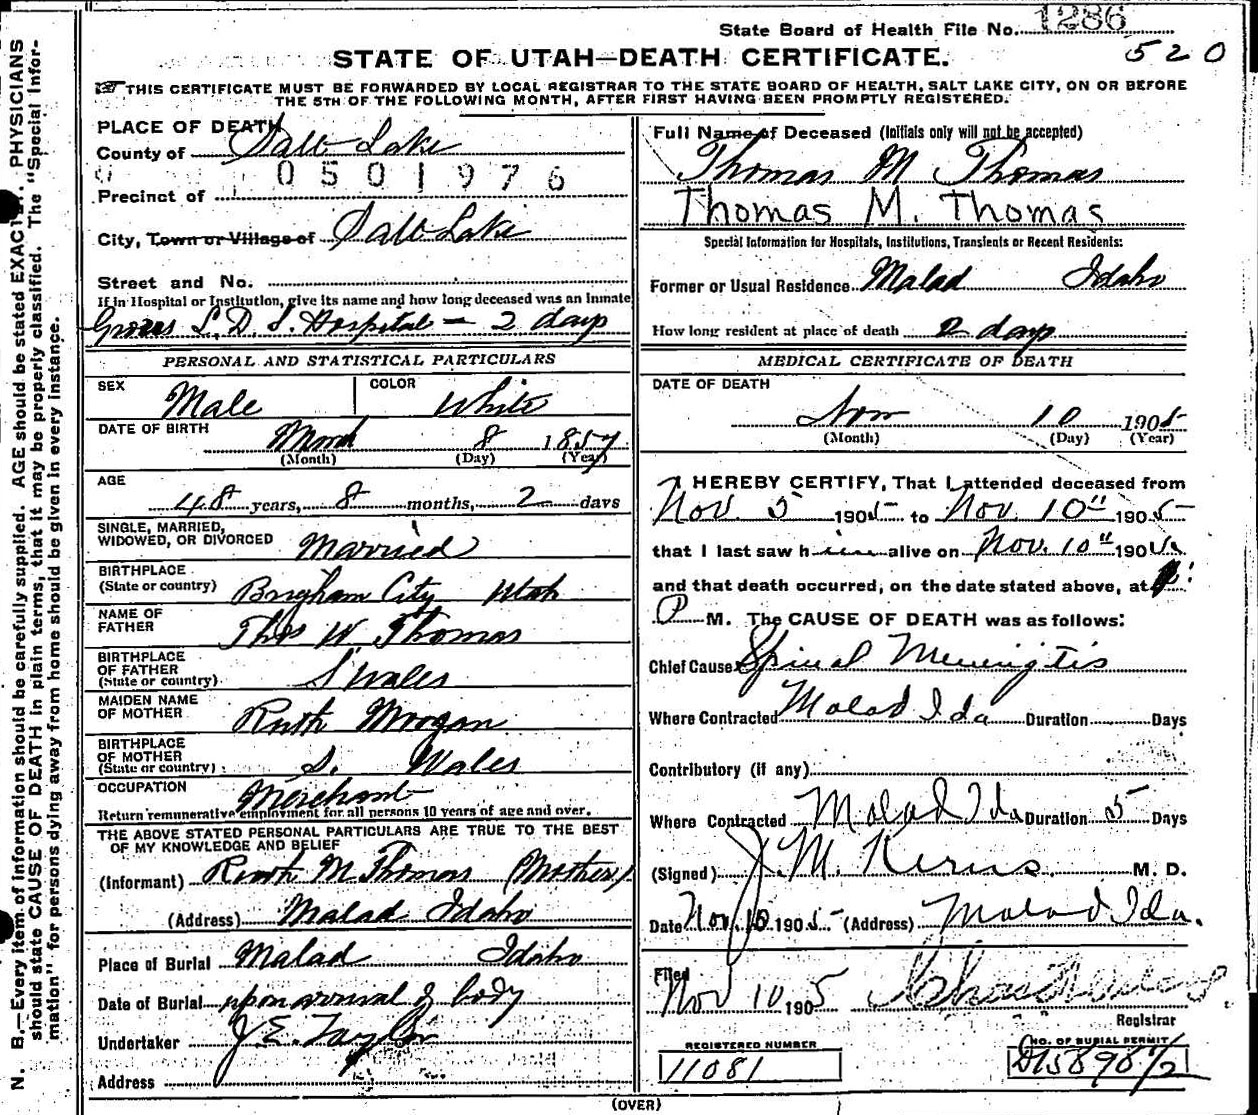 State Board of Health File No. 1286
520
STATE OF UTAH—DEATH CERTIFICATE.
THIS CERTIFICATE MUST BE FORWARDED BY LOCAL REGISTRAR TO THE STATE BOARD OF HEALTH, SALT LAKE CITY, ON OR BEFORE
THE 5TH OF THE FOLLOWING MONTH, AFTER FIRST HAVING BEEN PROMPTLY REGISTERED.
N. B.—Every item of information should be carefully supplied. AGE should be stated EXACTLY. PHYSICIANS
should state CAUSE OF DEATH in plain terms, that it may be properly classified. The "Special Infor-
mation" for persons dying away from home should be given in every instance.
PLACE OF DEATH
County of Salt Lake
0501976
Precinct of
City, Town or Village of Salt Lake
Street and No.
If in Hospital or Institution, give its name and how long deceased was an Inmate
Groves L. D. S. Hospital — 2 days
PERSONAL AND STATISTICAL PARTICULARS
SEX Male COLOR White
DATE OF BIRTH 8 1857
(Month) (Day) (Year)
AGE
48 years, 8 months, 2 days
SINGLE, MARRIED,
WIDOWED, OR DIVORCED Married
BIRTHPLACE
(State or country) Brigham City Utah
NAME OF
FATHER Thos W Thomas
BIRTHPLACE
OF FATHER
(State or country) S Wales
MAIDEN NAME
OF MOTHER Ruth Morgan
BIRTHPLACE
OF MOTHER
(State or country) S. Wales
OCCUPATION Merchant
Return remunerative employment for all persons 10 years of age and over.
THE ABOVE STATED PERSONAL PARTICULARS ARE TRUE TO THE BEST
OF MY KNOWLEDGE AND BELIEF
(Informant) Ruth M. Thomas (Mother)
(Address) Malad Idaho
Place of Burial Malad Idaho
Date of Burial upon arrival of body
Undertaker J. E. Taylor
Address
Full Name of Deceased (Initials only will not be accepted)
Thomas M Thomas
Thomas M. Thomas
Special Information for Hospitals, Institutions, Transients or Recent Residents:
Former or Usual Residence Malad Idaho
How long resident at place of death 2 days
MEDICAL CERTIFICATE OF DEATH
DATE OF DEATH
Nov 10 1905
(Month) (Day) (Year)
I HEREBY CERTIFY, That I attended deceased from
Nov. 5 1905 to Nov. 10" 1905
that I last saw him alive on Nov. 10" 1905
and that death occurred, on the date stated above, at
P M. The CAUSE OF DEATH was as follows:
Chief Cause Spinal Meningitis
Where Contracted Malad Ida Duration Days
Contributory (if any)
Where Contracted Malad Ida Duration 5 Days
(Signed) J. M. Kerns M. D.
Date Nov. 10 1905 (Address) Malad Ida.
Filed
Nov 10 1905
Registrar
REGISTERED NUMBER
11081
NO. OF BURIAL PERMIT
(OVER)